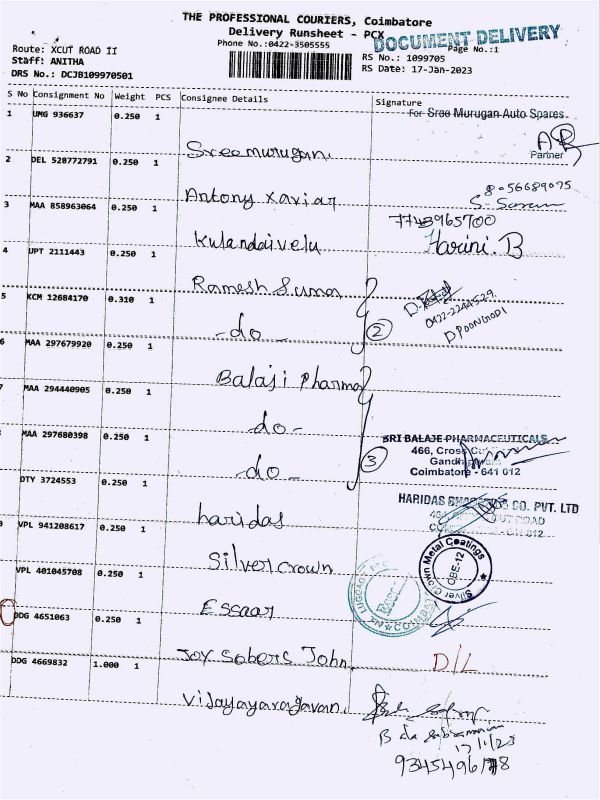 THE PROFESSIONAL COURIERS, Coimbatore
Delivery Runsheet - PCX
DOCUMENT DELIVERY
Phone No.:0422-3505555
Page No.:1
Route: XCUT ROAD II
Staff: ANITHA
DRS No.: DCJB109970501
RS No.: 1099705
RS Date: 17-Jan-2023
S No Consignment No Weight PCS Consignee Details Signature
For Sree Murugan Auto Spares
1 UMG 936637 0.250 1 Sree murugan
Partner
2 DEL 528772791 0.250 1 Antony Xaviar
8056689075
3 MAA 858963064 0.250 1 Kulandaivelu
7743965700
Harini. B
4 UPT 2111443 0.250 1 Ramesh Sumar
5 KCM 12684170 0.310 1 -do-
2
0422-2244529
D POONGODI
6 MAA 297679920 0.250 1 Balaji Pharma
7 MAA 294440905 0.250 1 -do-
MAA 297680398 0.250 1 -do-
3
SRI BALAJE PHARMACEUTICALS
466, Cross
Coimbatore - 641 012
DTY 3724553 0.250 1 haridas
HARIDAS CO. PVT. LTD
ROAD
012
VPL 941208617 0.250 1 Silver crown
Silver Crown Metal Coatings
CBE-12
VPL 401045708 0.250 1 Essaar
LUGGAGE
DDG 4651063 0.250 1 Joy Sobers John
D/L
DDG 4669832 1.000 1 Vijayayaragavan.
17/1/23